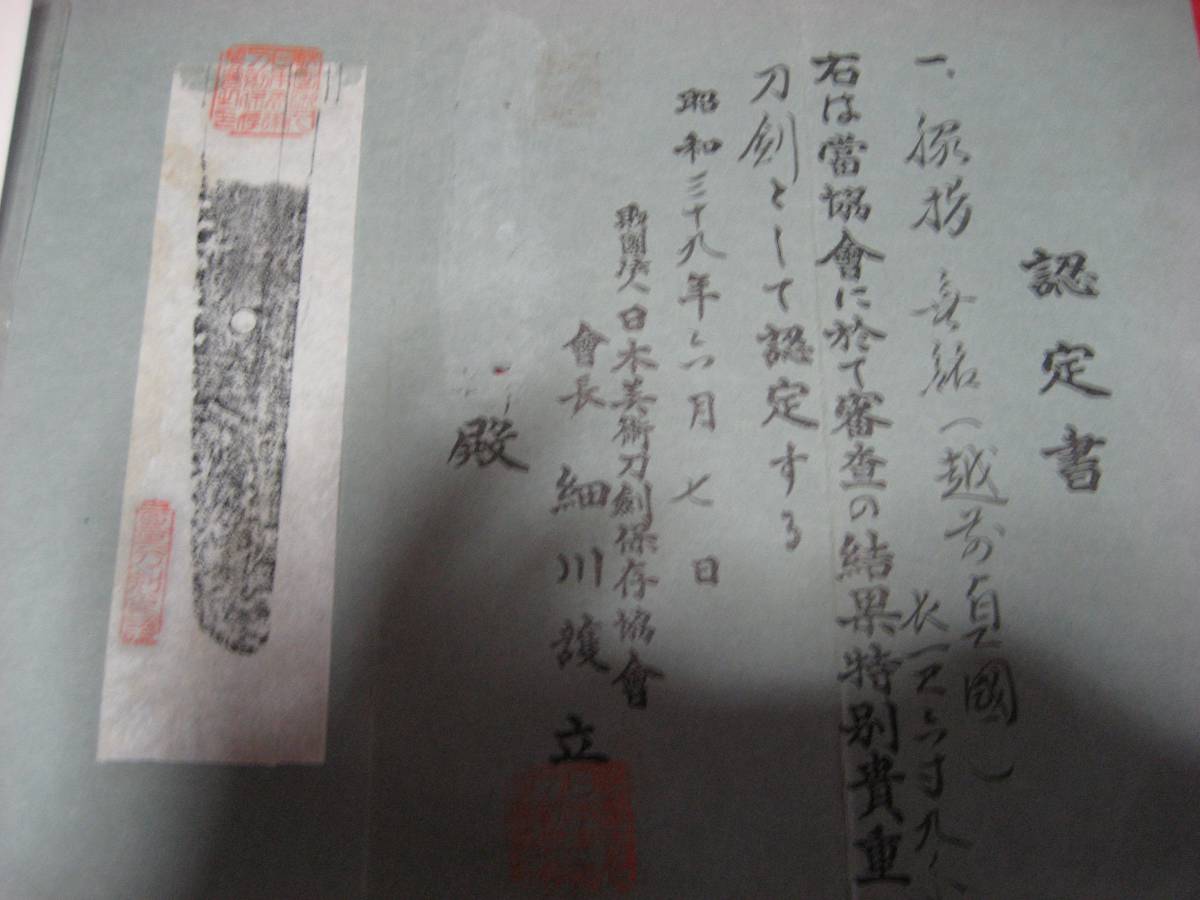 認定書
一、脇指 無銘（越前貞國）
長一尺六寸九分
右は當協會に於て審査の結果特別貴重
刀劍として認定する
昭和三十九年六月七日
財團法人日本美術刀劍保存協會
會長 細川護立
殿